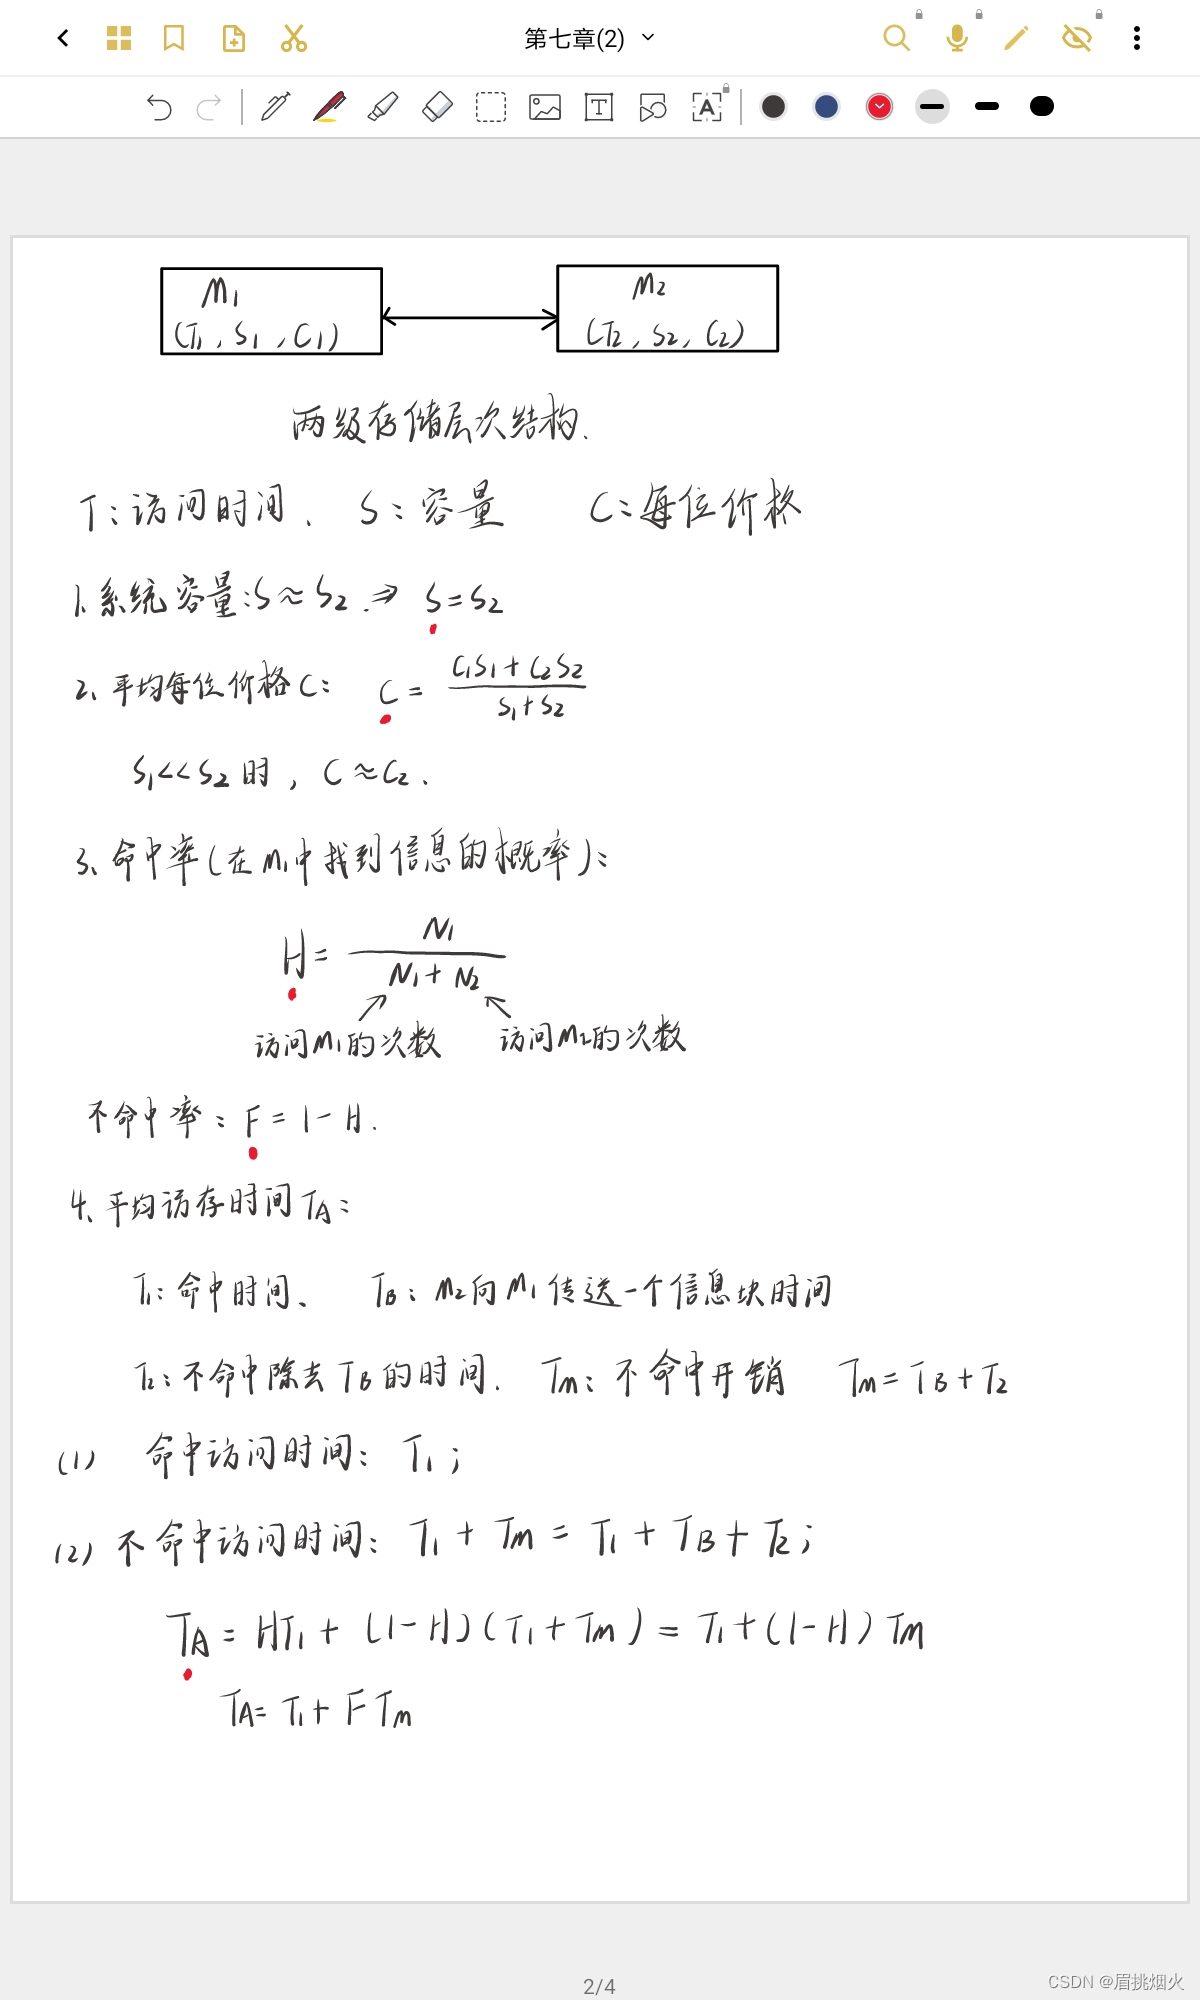 第七章(2)
M1
(T1, S1, C1)
M2
(T2, S2, C2)
两级存储层次结构.
T:访问时间、 S:容量 C:每位价格
1.系统容量:S≈S2.⇒ S=S2
2、平均每位价格C: C = (C1S1+C2S2)/(S1+S2)
S1<<S2时, C≈C2.
3、命中率(在M1中找到信息的概率):
H = N1/(N1+N2)
访问M1的次数 访问M2的次数
不命中率:F=1-H.
4、平均访存时间TA:
T1:命中时间、 TB:M2向M1传送一个信息块时间
T2:不命中除去TB的时间. Tm:不命中开销 Tm=TB+T2
(1) 命中访问时间: T1;
(2) 不命中访问时间: T1+Tm=T1+TB+T2;
TA=HT1+(1-H)(T1+Tm)=T1+(1-H)TM
TA=T1+FTm
2/4
CSDN @眉挑烟火